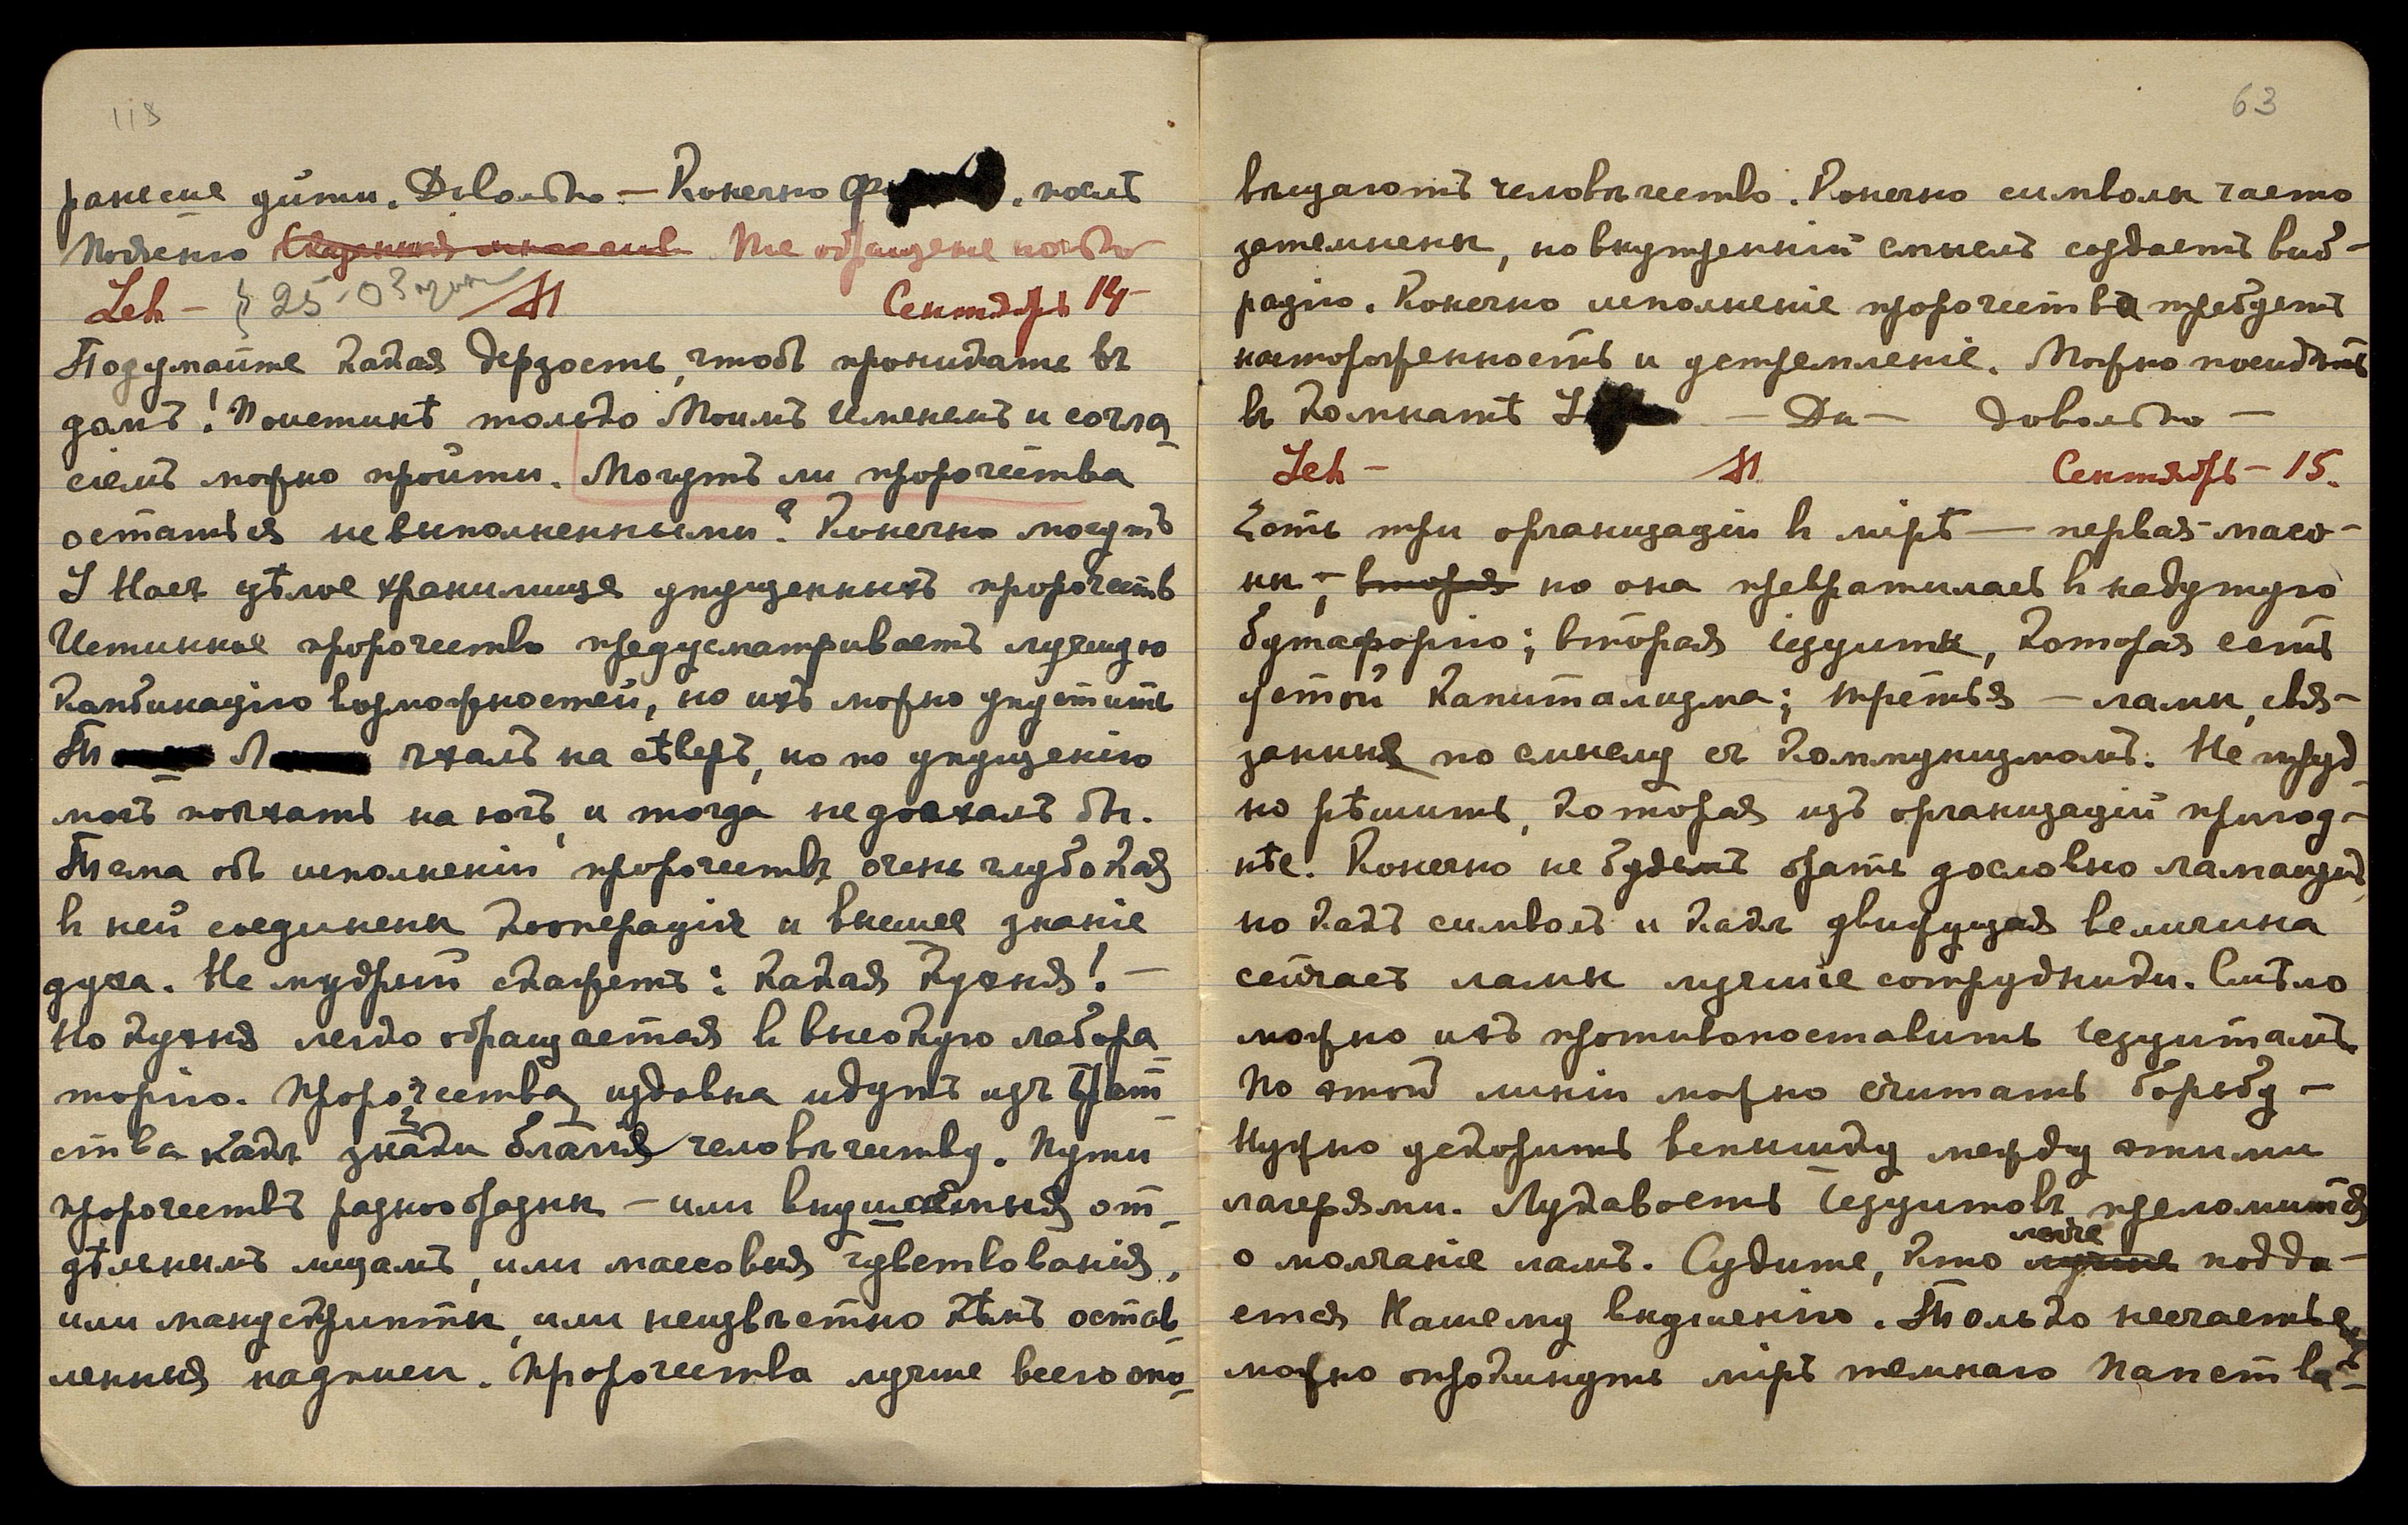 118
ранение дитя. Довольно — Конечно Фу , послѣ
полдня
Leh — § 25 — О Зрѣнi M Сентябрь 14 —
Подумайте какая дерзость, чтоб проникать въ
домъ! Поистинѣ только Моимъ Именемъ и согла
сіемъ можно пройти. Могутъ ли пророчества
остаться невыполненными? Конечно могутъ
У Насъ цѣлое хранилище упущенныхъ пророчествъ
Истинное пророчество предусматриваетъ лучшую
комбинацію возможностей, но ихъ можно упустить
Т Л ѣхалъ на сѣверъ, но по упущенію
могъ поѣхать на югъ, и тогда не доѣхалъ бы.
Тема объ исполненіи пророчествъ очень глубокая
въ ней соединены кооперація и высшее знаніе
духа. Не мудрый скажетъ: какая кухня! —
Но кухня легко обращается въ высокую лабора
торію. Пророчества издавна идутъ изъ Брат
ства какъ знаки благія человѣчеству. Пути
пророчествъ разнообразны — или внушенныя от-
дѣльнымъ лицамъ, или массовыя чувствованія,
или манускрипты, или неизвѣстно кѣмъ остав
ленныя надписи. Пророчества лучше всего опо-
63
вѣщаютъ человѣчество. Конечно символы часто
затемнены, но внутренній смыслъ создаетъ виб-
рацію. Конечно исполненіе пророчества требуетъ
настороженность и устремленіе. Можно посидѣть
въ комнатѣ У — Да — довольно —
Leh — M Сентябрь — 15.
Есть три организаціи въ мірѣ — первая — масо-
ны, — вторая но она превратилась въ надутую
бутафорію; вторая іезуиты, которая есть
устой капитализма; третья — ламы, свя-
занныя по смыслу съ коммунизмомъ. Не труд
но рѣшить, которая изъ организацій пригод-
нѣе. Конечно не будемъ брать дословно ламаизмъ,
но какъ символъ и какъ движущая величина
сейчасъ ламы лучшіе сотрудники. Смѣло
можно ихъ противопоставить іезуитамъ.
По этой линіи можно считать борьбу —
Нужно ускорить вспышку между этими
лагерями. Лукавость іезуитовъ преломится
о молчаніе ламъ. Судите, кто легче лучше подда-
ется Нашему внушенію. Только несчастьемъ
можно опрокинуть міръ темнаго Папства —